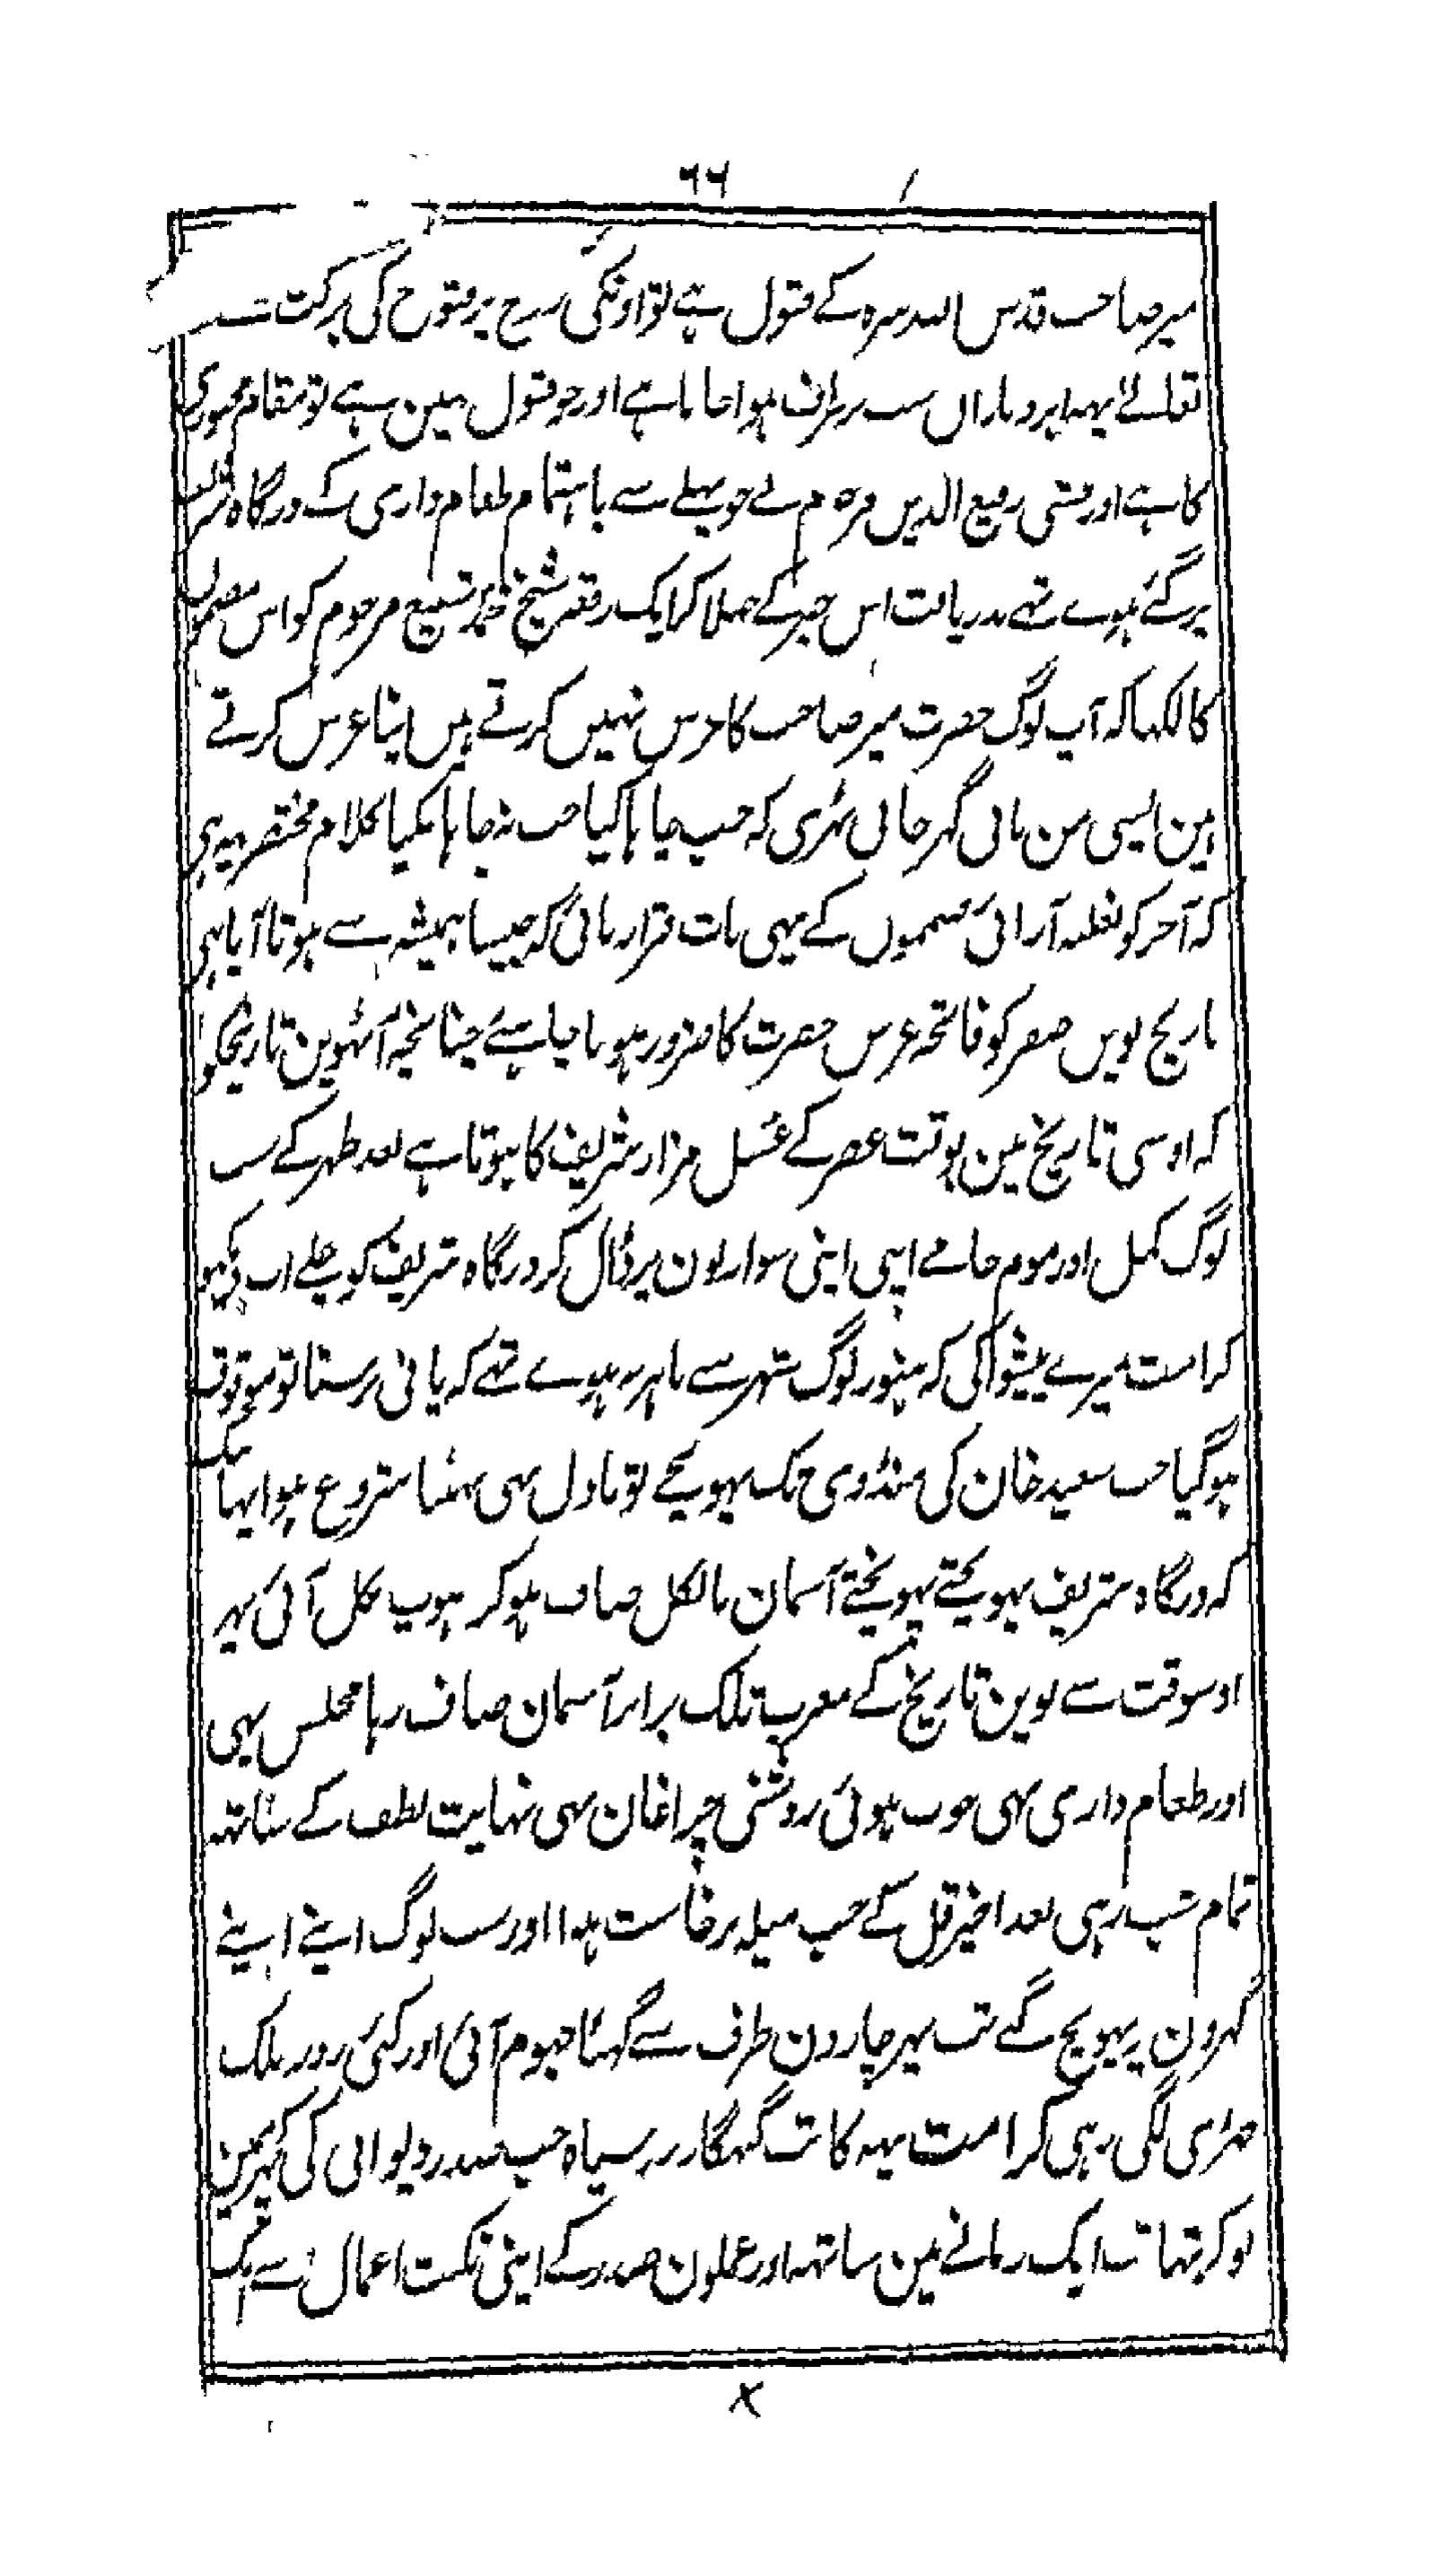 ٦٦
میرصاحب قدس اللہ سرہ کے قبول ہے تو اونکی روح پرفتوح کی برکت سے
تعالےٰ یہہ ابر و باراں سب برطرف ہوا جاتا ہے اور جو قبول نہین ہے تو مقام مجبوری
کا ہے اور منشی رفیع الدین مرحوم نے جو پہلے سے باہتمام طعام داری کے درگاہ شریف
پر گئے ہوے تہے بدریافت اس خبر کے جھلا کر ایک رقعہ شیخ محمد شفیع مرحوم کو اس مضمون
کا لکہا کہ آپ لوگ حضرت میر صاحب کا عرس نہیں کرتے ہیں اپنا عرس کرتے
ہین ایسی من مانی گہر جانی ٹہری کہ جب چاہا کیا جب نہ چاہا نکیا کلام مختصر یہہ ہی
کہ آخر کو بغلبہ آرائی مہتمموں کے یہی بات قرار پائی کہ جیسا ہمیشہ سے ہوتا آیا ہی
تاریخ نویں صفر کو فاتحہ عرس حضرت کا ضرور ہونا چاہئے چنانچہ آٹہوین تاریخکو
کہ اوسی تاریخ مین بوقت عصر کے غسل مزار شریف کا ہوتا ہے بعد ظہر کے سب
لوگ کمل اور موم جامے اپنی اپنی سواریون پر ڈال کر درگاہ شریف کو چلے اب دیکہو
کرامت میرے پیشوا کی کہ ہنوز لوگ شہر سے باہر نہ ہوے تہے کہ پانی برسنا تو موقوف
ہو گیا جب سعید خان کی منڈوی تک پہونچے تو بادل بہی پہٹنا شروع ہوا یہانتک
کہ درگاہ شریف پہونچتے پہونچتے آسمان بالکل صاف ہو کر دہوپ نکل آئی پہر
اوسوقت سے نوین تاریخ کے مغرب تلک برابر آسمان صاف رہا مجلس بہی
اور طعام داری بہی خوب ہوئی روشنی چراغان بہی نہایت لطف کے ساتہہ
تمام شب رہی بعد اخیر قل کے جب میلہ برخاست ہوا اور سب لوگ اپنے اپنے
گہرون پر پہونچ گئے تب پہر چارون طرف سے گہٹا جہوم آئی اور کئی روز تلک
جہڑی لگی رہی کرامت یہہ کاتب گنہگار روسیاہ جب صدر دیوانی کی کچہری مین
نوکر تہا تب ایک زمانے مین ساتہہ اور عملون صدر کے اپنی نکبت اعمال سے